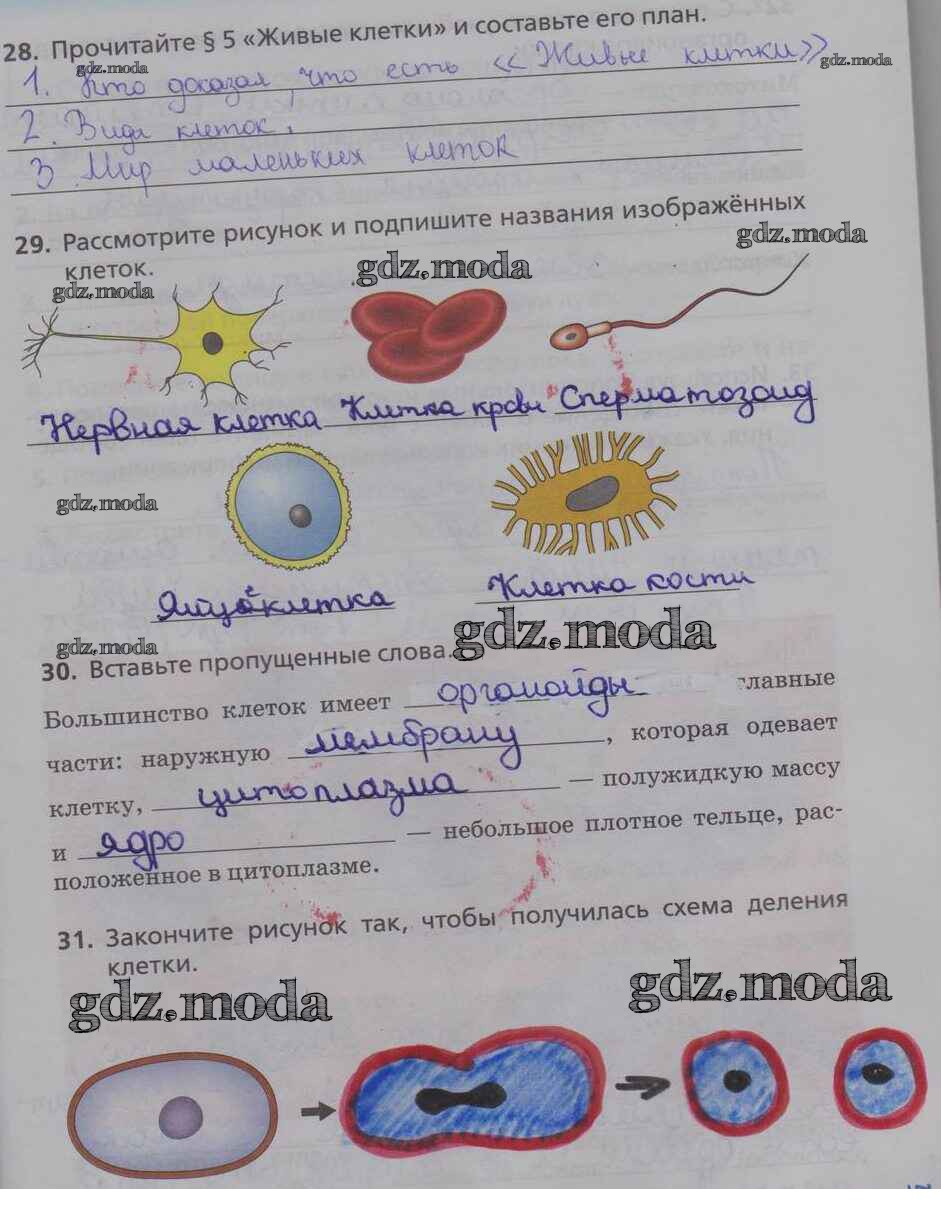 28. Прочитайте § 5 «Живые клетки» и составьте его план.
gdz.moda
gdz.moda
1. Кто доказал, что есть «Живые клетки»
2. Виды клеток.
3. Мир маленьких клеток
29. Рассмотрите рисунок и подпишите названия изображённых
клеток.
gdz.moda
gdz.moda
gdz.moda
Нервная клетка Клетка крови Сперматозоид
gdz.moda
Яйцоклетка
Клетка кости
gdz.moda
gdz.moda
30. Вставьте пропущенные слова.
Большинство клеток имеет органойды главные
части: наружную мембрану, которая одевает
клетку, цитоплазма — полужидкую массу
и ядро — небольшое плотное тельце, рас-
положенное в цитоплазме.
31. Закончите рисунок так, чтобы получилась схема деления
клетки.
gdz.moda
gdz.moda